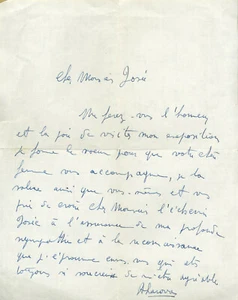 Cher Monsieur José
Me ferez-vous l'honneur
et la joie de visiter mon exposition
je forme le voeu pour que votre chère
femme vous accompagne, je la
salue ainsi que vous-même et vous
prie de croire cher Monsieur
José à l'assurance de ma profonde
sympathie et à la reconnaissance
que j'éprouve envers vous qui êtes
toujours si soucieux de m'être agréable